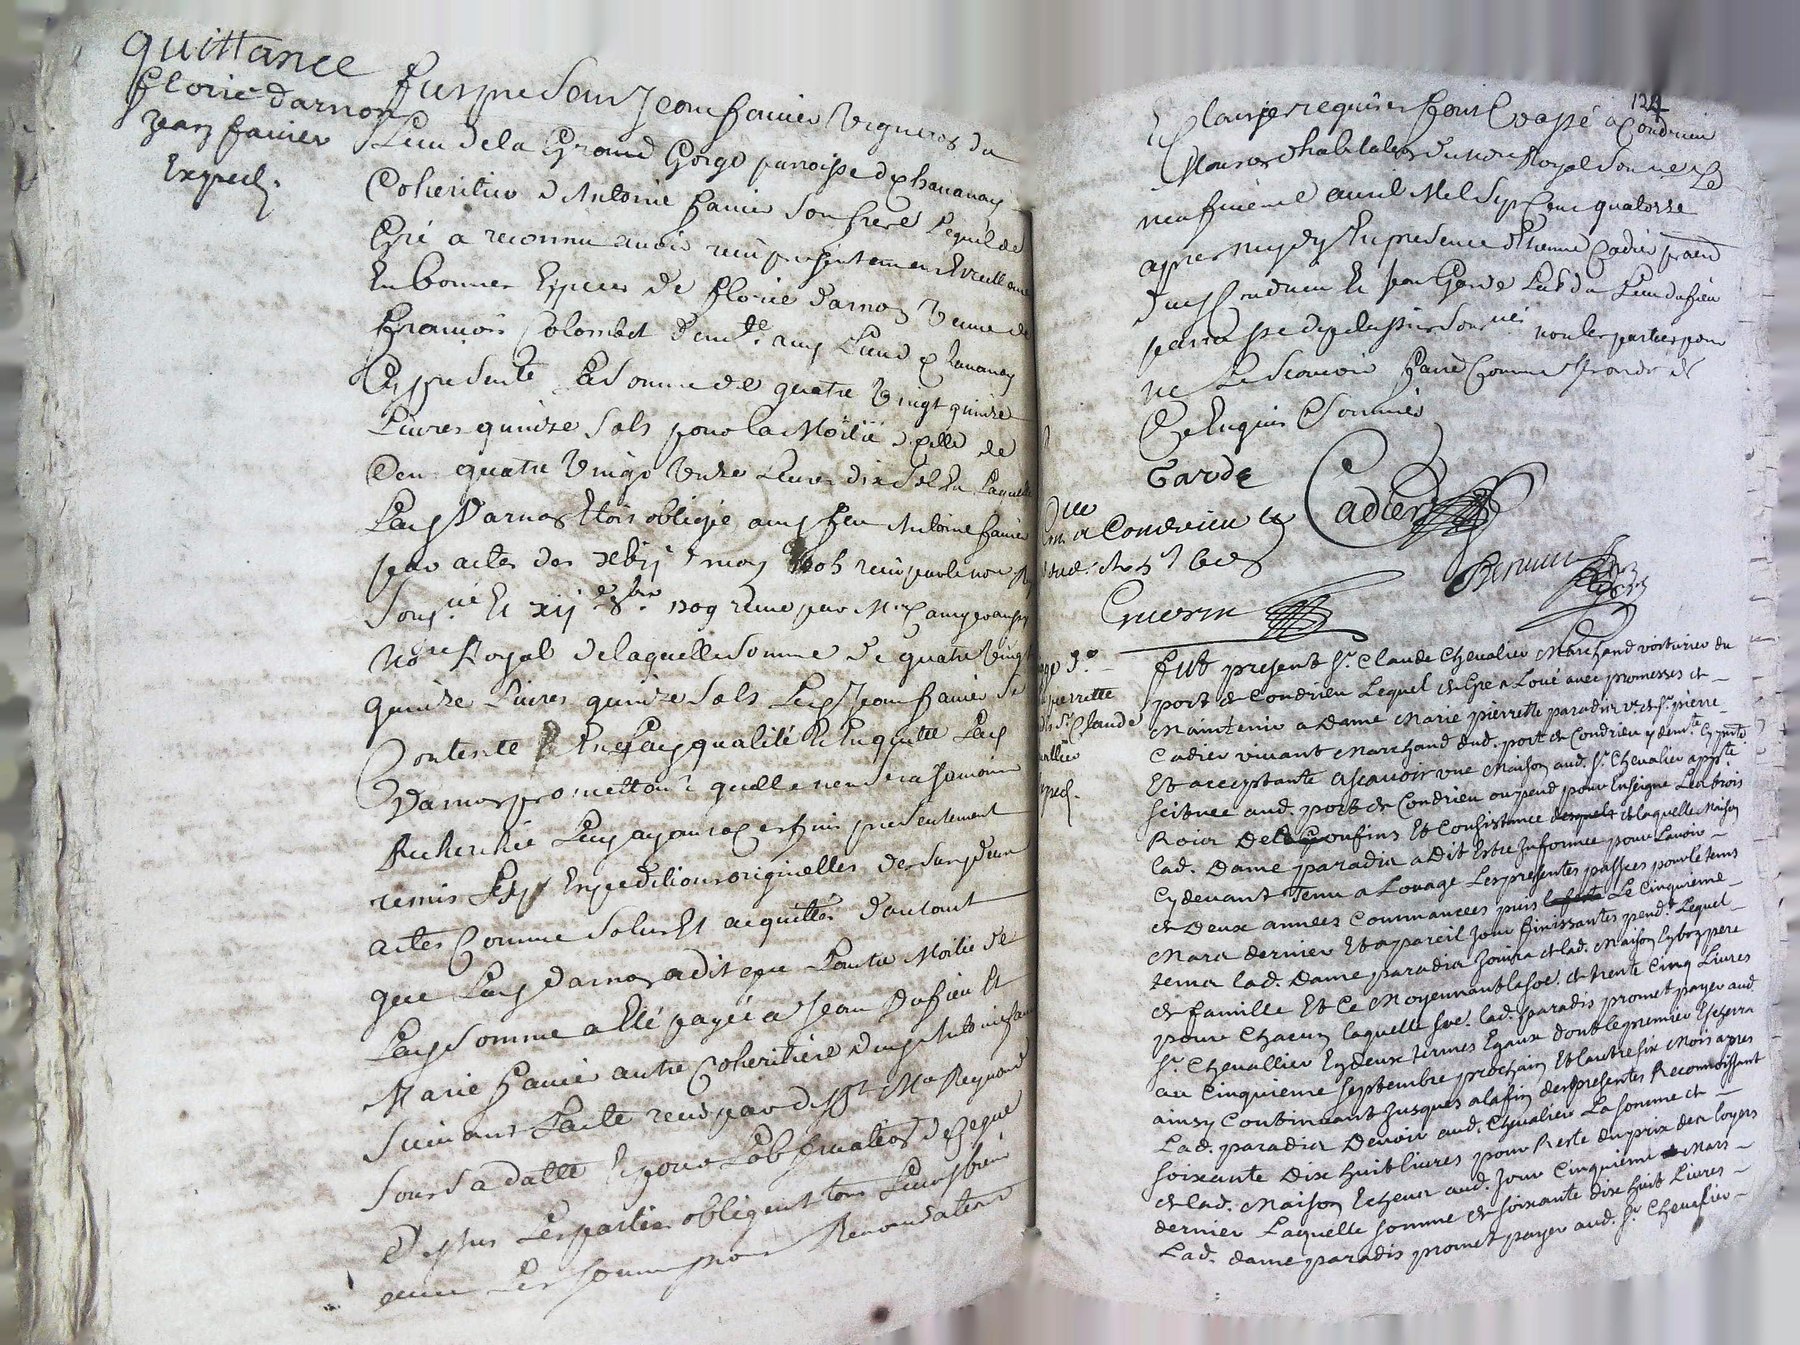 quittance
florie darnon
Jean favier
Exped.
fut present Jean favier vigneron du
Lieu de la Grand Gorge parroisse de Chavanay
Coheritier d'Antoine favier son frere Lequel de
Gré a reconnu avoir reçu presentement et reellement
En bonnes Especes de florie darnon veuve de
françois Colombet demte. aud Lieu de Chavanay
Cy presente La somme de quatre vingt quinze
Livres quinze sols pour la Moitié de celle de
Cent quatre vingt unze Livres dix sols En Laquelle
Lad Darnon Etoit obligée aud feu Antoine favier
par actes des xxvij may reçu par le nore Ryal
Sousné. Et xij 8bre 1709 reçu par Mre
Nore Royal de laquelle somme de quatre vingt
quinze Livres quinze sols Led Jean favier se
Contente En Sad qualité Et En quitte Lad
Darnon promettant quelle n'en sera Jamais
Recherchée Luy ayant presentement
remis Lesd Expeditions originelles desd deux
actes Comme solus Et acquittés d'autant
que Lad Darnon a dit que L'autre Moitié de
Lad somme a Eté payée a Jean Dufieu Et
Marie favier autre Coheritiere dud Antoine favier
suivant L'acte reçu par Mre Reynaud
sous sa datte Et pour L'observation de ce que
Dessus Les parties obligent tous Leurs biens
avec Les soumissions Renonciations
124
Et Clauses requises fait Et passé a Condrieu
Maison d'habitation du nore Royal sousné Le
neufvieme avril Mil Sept Cent quatorze
apres midy En presence d'Etienne Cadier praen
dud Condrieu Et Jean Garde Labr du Lieu du fieu
parroisse de sousnés non les parties pour
ne Le Scavoir faire Comme Ont dit de
Ce Enquis Et sommés
Garde
Cadier
a Condrieu le
Guerin
fut present Sr. Claude Chevalier Marchand voiturier du
port de Condrieu Lequel de Gre a Loué avec promesses de
Maintenir a Dame Marie pierrette paradis ve. de Sr. pierre
Cadier vivant Marchand dud. port de Condrieu y demte. Cy pnte.
Et acceptante ascavoir une Maison aud. Sr. Chevalier appte.
scituée aud. port de Condrieu ou pend pour Enseigne Les trois
Rois De Confins Et Consistance de laquelle Maison
lad. Dame paradis a Dit Estre Informée pour Lavoir
Cydevant Tenu a Louage Les presentes passées pour le tems
de Deux années Commancées puis Le Cinquieme
Mars dernier Et a pareil Jour finissantes pendt. Lequel
tems lad. Dame paradis Jouira de lad. Maison En bon pere
de famille Et Ce Moyennant la soe. de trente Cinq Livres
pour Chacun laquelle soe. lad. paradis promet payer aud.
Sr. Chevallier En deux termes Egaux dont le premier Escherra
au Cinquieme Septembre prochain Et lautre six Mois apres
ainsy Continuant Jusques a la fin des presentes Reconnoissant
Lad. paradis Devoir aud. Chevalier La somme de
soixante Dix huit livres pour Reste du prix des loyers
de lad. Maison Echeus aud. Jour Cinquieme Mars
dernier Laquelle somme de soixante dix huit Livres
Lad. dame paradis promet payer aud. Sr. Chevalier